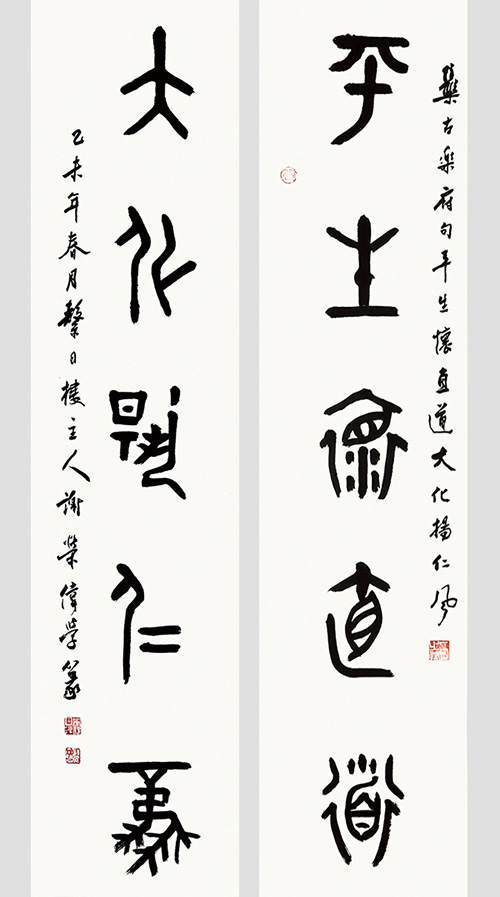 集古樂府句平生懷直道大化揚仁風
平生懷直道
大化揚仁風
乙未年春月繫日樓主人謝榮偉學篆